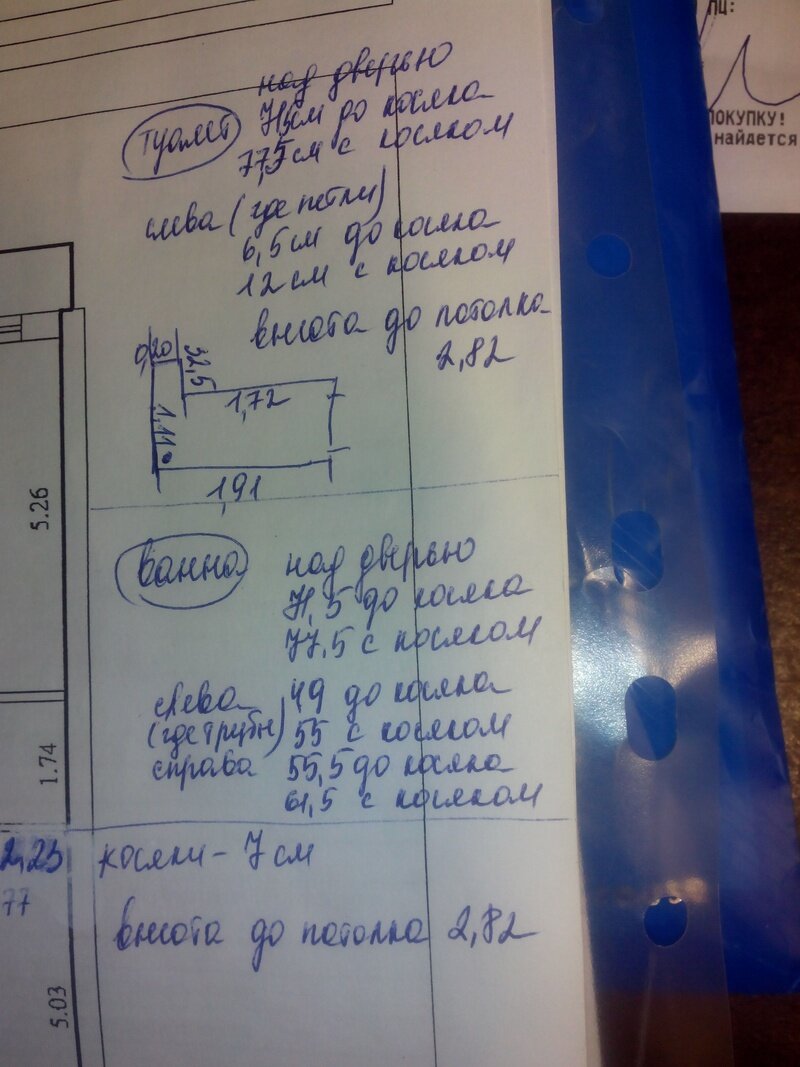 ПЦ:
ПОКУПКУ!
найдется
над дверью
туалет
71,5см до косяка
77,5см с косяком
слева (где петли)
6,5см до косяка
12см с косяком
высота до потолка
2,82
0,20
32,5
1,72
1,11
1,91
5.26
ванна
над дверью
71,5 до косяка
77,5 с косяком
слева 49 до косяка
(где трубы) 55 с косяком
справа 55,5 до косяка
61,5 с косяком
1.74
2,23 косяки - 7 см
77
высота до потолка 2,82
5.03